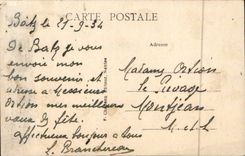 CARTE POSTALE
Batz le 27-9-34
Adresse
De Batz je vous
envoie mon
bon souvenir et
adresse à Messieurs
mes meilleurs
vœux de fête.
Affectueux bonjour à tous
L. Branchereau
Madame
le Pivage
Montjean
M-et-L